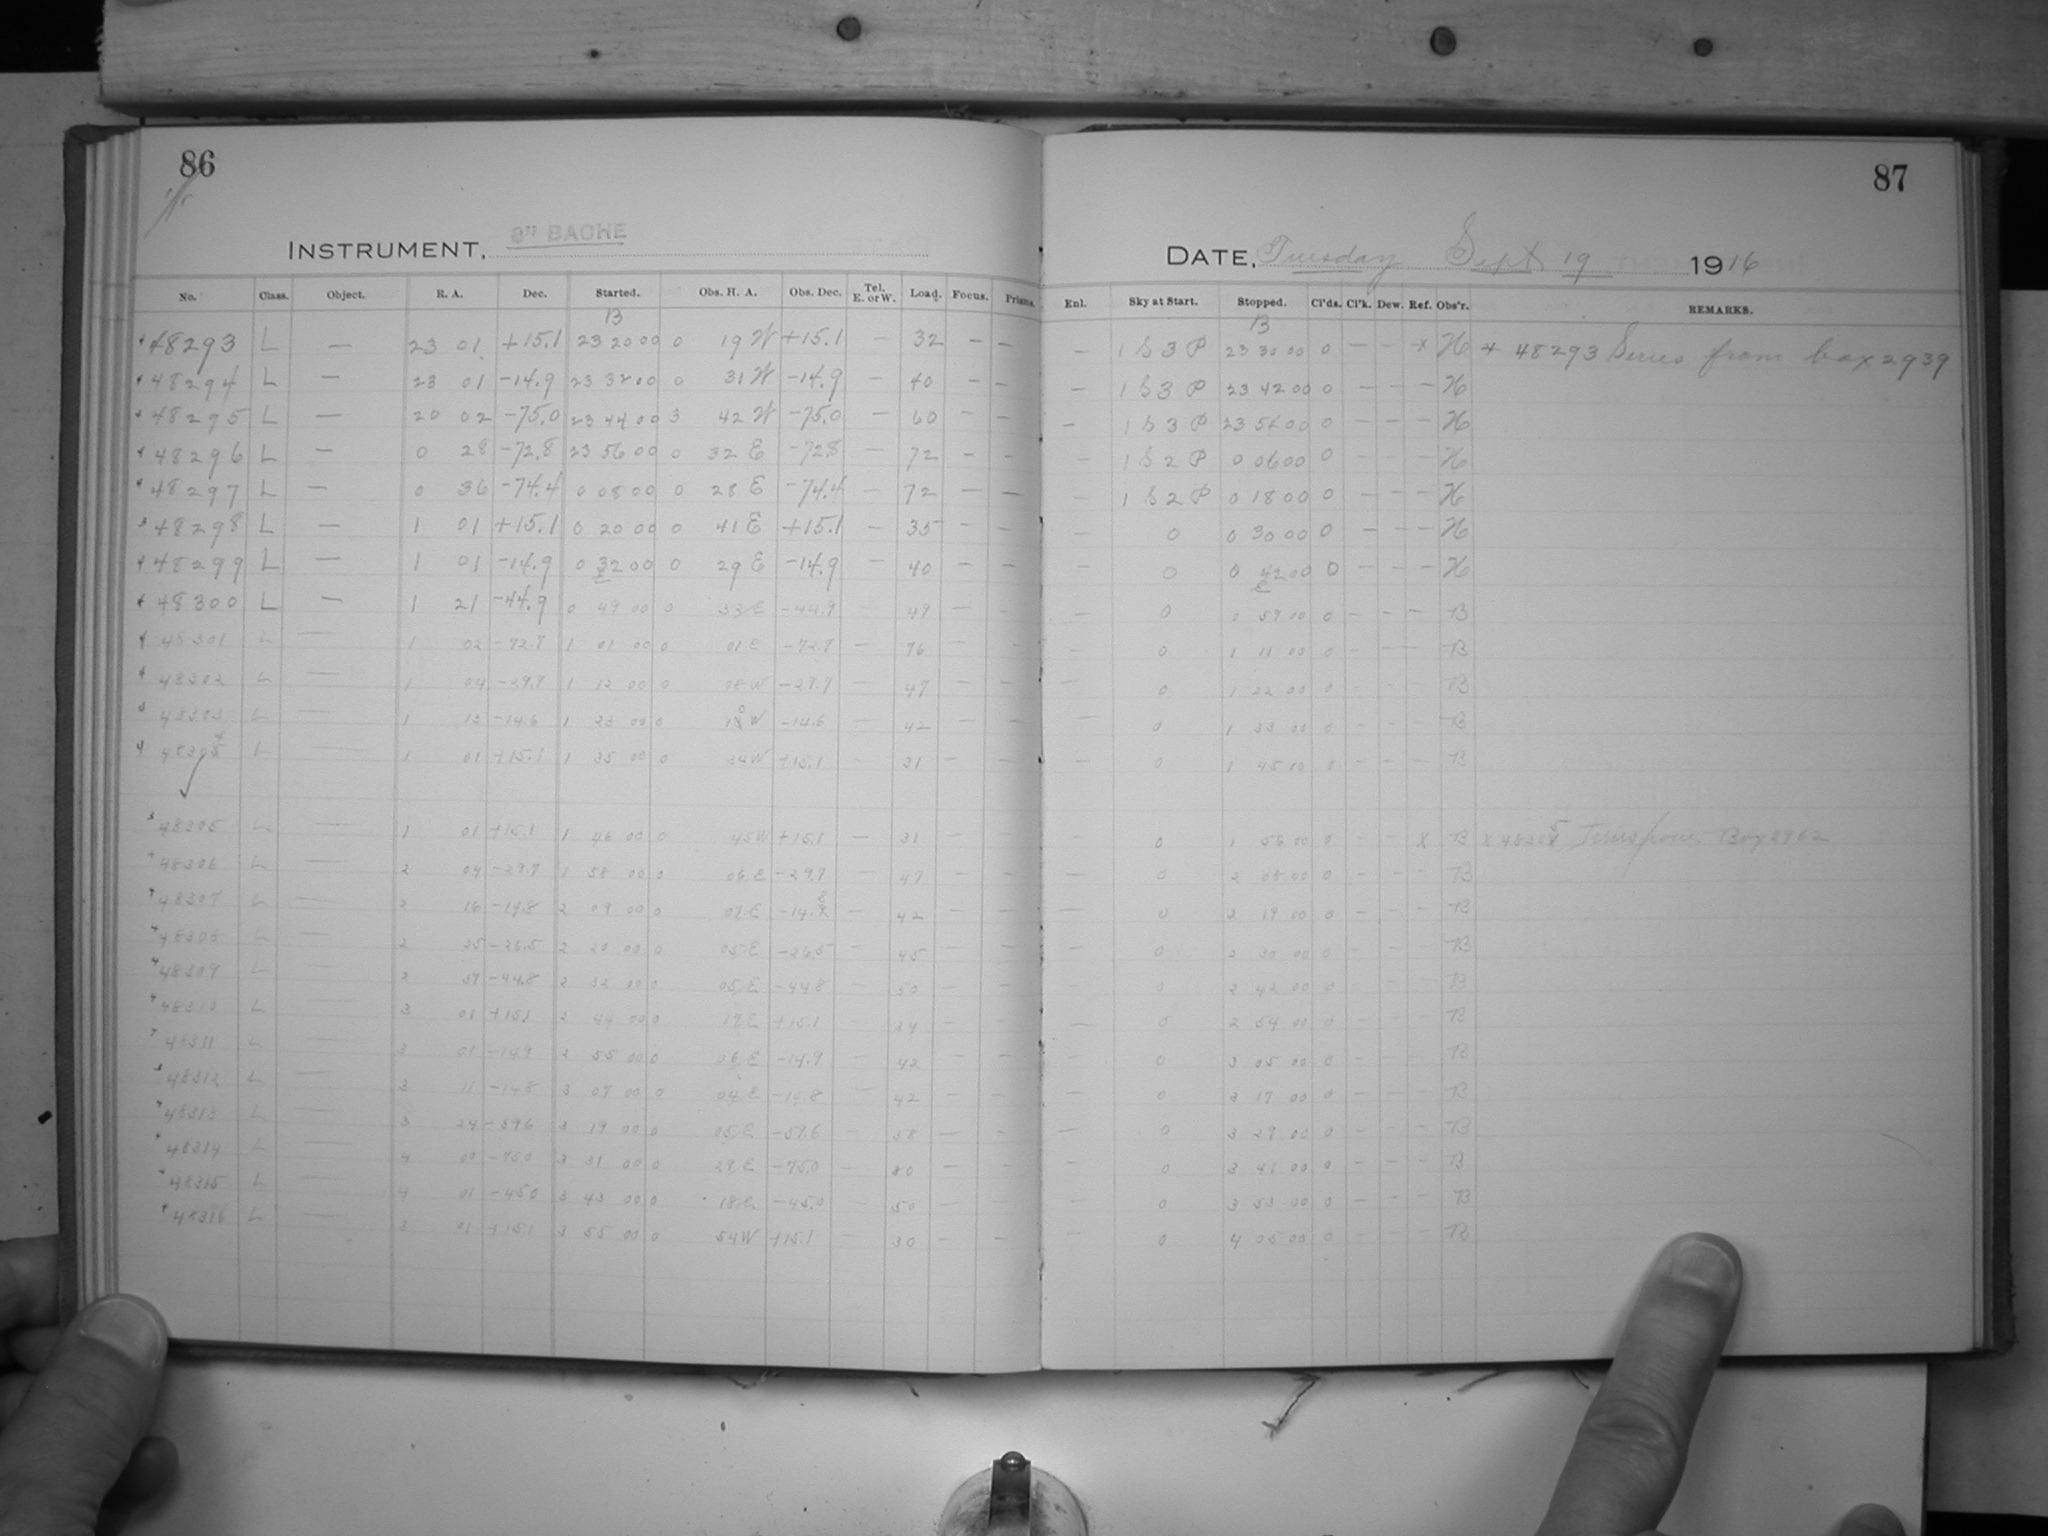 86
INSTRUMENT, 8" BACHE
No. Class. Object. R. A. Dec. Started. Obs. H. A. Obs. Dec. Tel. E. or W. Load. Focus. Prisms.
B
48293 L — 23 01 +15.1 23 20 00 0 19 W +15.1 — 32 — —
48294 L — 23 01 -14.9 23 32 00 0 31 W -14.9 — 40 — —
48295 L — 20 02 -75.0 23 44 00 3 42 W -75.0 — 60 — —
48296 L — 0 28 -72.8 23 56 00 0 32 E -72.8 — 72 — —
48297 L — 0 36 -74.4 0 08 00 0 28 E -74.4 — 72 — —
48298 L — 1 01 +15.1 0 20 00 0 41 E +15.1 — 35 — —
48299 L — 1 01 -14.9 0 32 00 0 29 E -14.9 — 40 — —
E
48300 L — 1 21 -44.9 0 49 00 0 33 E -44.9 — 49 — —
48301 L — 1 02 -72.7 1 01 00 0 01 E -72.7 — 76 — —
48302 L — 1 04 -29.7 1 12 00 0 08 W -29.7 — 47 — —
48303 L — 1 13 -14.6 1 23 00 0 10 W -14.6 — 42 — —
48304 L — 1 01 +15.1 1 35 00 0 34 W +15.1 — 31 — —
48305 L — 1 01 +15.1 1 46 00 0 45 W +15.1 — 31 — —
48306 L — 2 04 -29.7 1 58 00 0 06 E -29.7 — 47 — —
48307 L — 2 16 -14.8 2 09 00 0 07 E -14.8 — 42 — —
48308 L — 2 25 -26.5 2 20 00 0 05 E -26.5 — 45 — —
48309 L — 2 37 -44.8 2 32 00 0 05 E -44.8 — 50 — —
48310 L — 3 01 +15.1 2 44 00 0 17 E +15.1 — 34 — —
48311 L — 3 01 -14.9 2 55 00 0 06 E -14.9 — 42 — —
48312 L — 3 11 -14.8 3 07 00 0 04 E -14.8 — 42 — —
48313 L — 3 24 -59.6 3 19 00 0 05 E -59.6 — 58 — —
48314 L — 4 00 -75.0 3 31 00 0 29 E -75.0 — 80 — —
48315 L — 4 01 -45.0 3 43 00 0 18 E -45.0 — 50 — —
48316 L — 3 01 +15.1 3 55 00 0 54 W +15.1 — 30 — —
87
DATE, Tuesday Sept 19 1916
Enl. Sky at Start. Stopped. Cl'ds. Cl'k. Dew. Ref. Obs'r. REMARKS.
B
— 1 S 3 P 23 30 00 0 — — × H × 48293 Series from box 2939
— 1 S 3 P 23 42 00 0 — — — H
— 1 S 3 P 23 54 00 0 — — — H
— 1 S 2 P 0 06 00 0 — — — H
— 1 S 2 P 0 18 00 0 — — — H
— 0 0 30 00 0 — — — H
— 0 0 42 00 0 — — — H
E
— 0 0 59 00 0 — — — B
— 0 1 11 00 0 — — — B
— 0 1 22 00 0 — — — B
— 0 1 33 00 0 — — — B
— 0 1 45 00 0 — — — B
0 1 56 00 0 — — X B X 48305 Series from Box 2962
— 0 2 08 00 0 — — — B
— 0 2 19 00 0 — — — B
— 0 2 30 00 0 — — — B
0 2 42 00 0 — — — B
— 0 2 54 00 0 — — — B
0 3 05 00 0 — — — B
— 0 3 17 00 0 — — — B
— 0 3 29 00 0 — — — B
— 0 3 41 00 0 — — — B
— 0 3 53 00 0 — — — B
— 0 4 05 00 0 — — — B